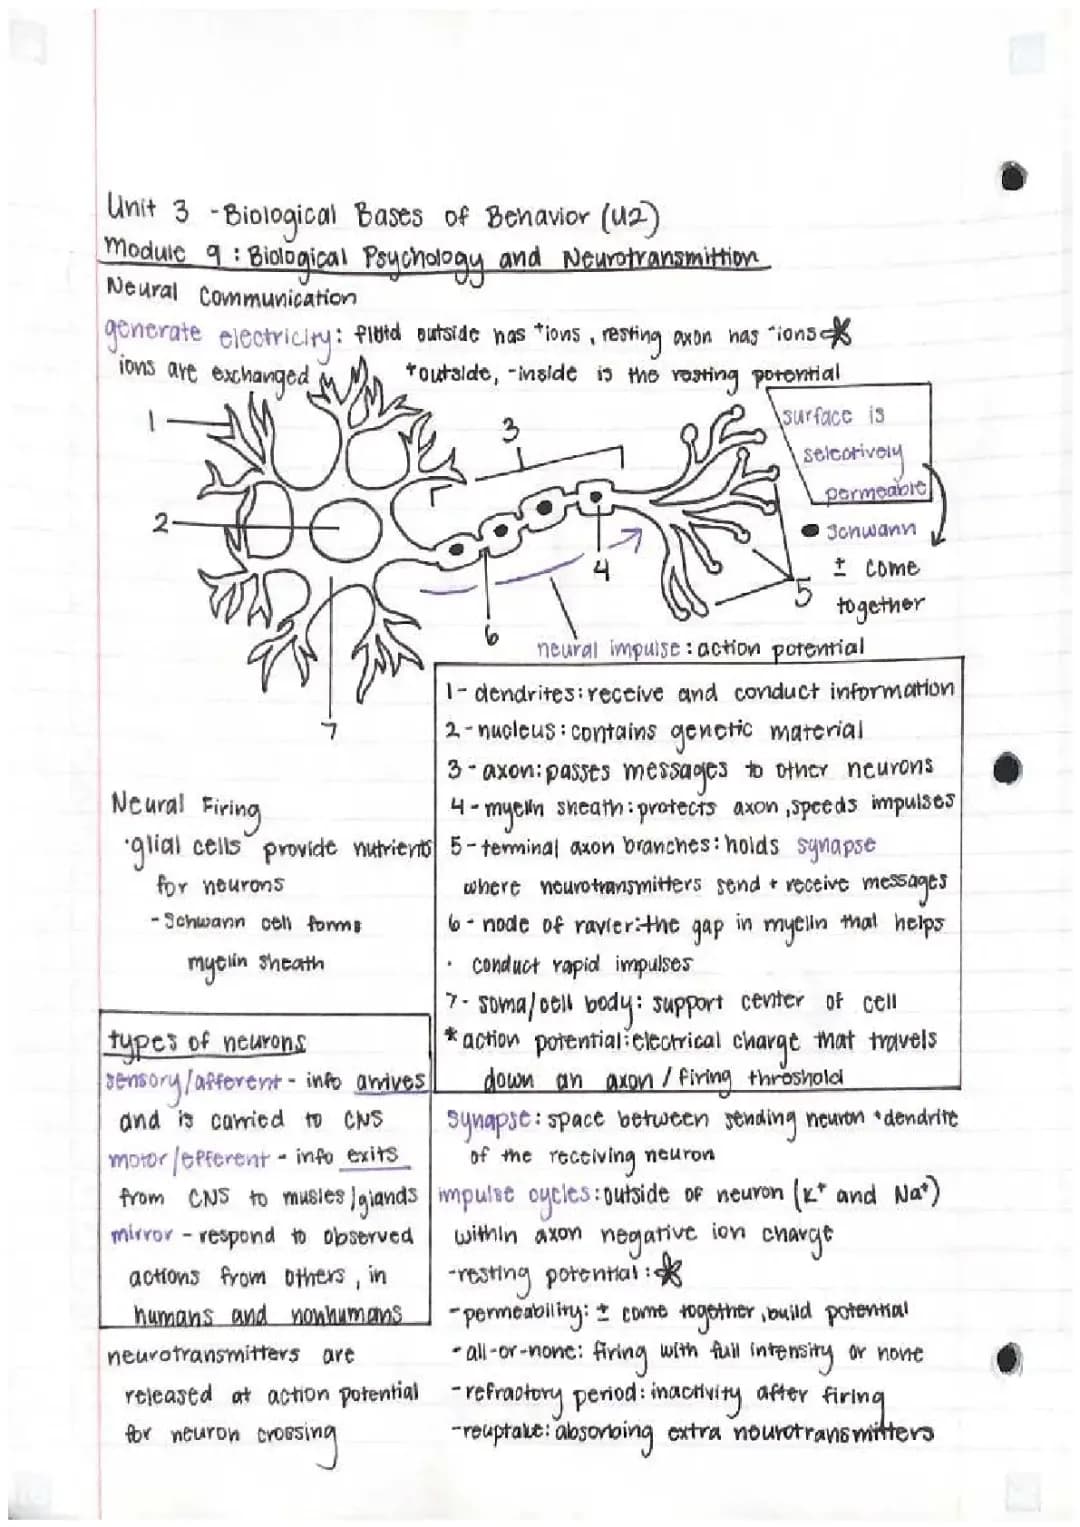 Unit 3 - Biological Bases of Behavior (U2)
Module 9 : Biological Psychology and Neurotransmittion
Neural Communication
generate electricity: fluid outside has +ions, resting axon has -ions *
ions are exchanged
+outside, -inside is the resting potential
surface is
selectively
permeable
Schwann
± come
together
1
2
3
4
5
6
7
neural impulse: action potential
1- dendrites: receive and conduct information
2- nucleus: contains genetic material
3- axon: passes messages to other neurons
4- myelin sheath: protects axon, speeds impulses
5- terminal axon branches: holds synapse
where neurotransmitters send + receive messages
6- node of ravier: the gap in myelin that helps
conduct rapid impulses
7- soma/cell body: support center of cell
* action potential: electrical charge that travels
down an axon / firing threshold
Neural Firing
·glial cells provide nutrients
for neurons
- Schwann cell forms
myelin sheath
types of neurons
sensory/afferent - info arrives
and is carried to CNS
motor/efferent - info exits
from CNS to musles/glands
mirror - respond to observed
actions from others, in
humans and nonhumans
neurotransmitters are
released at action potential
for neuron crossing
synapse: space between sending neuron + dendrite
of the receiving neuron
impulse cycles: outside of neuron (K+ and Na+)
within axon negative ion charge
-resting potential: *
-permeability: ± come together, build potential
-all-or-none: firing with full intensity or none
-refractory period: inactivity after firing
-reuptake: absorbing extra neurotransmitters